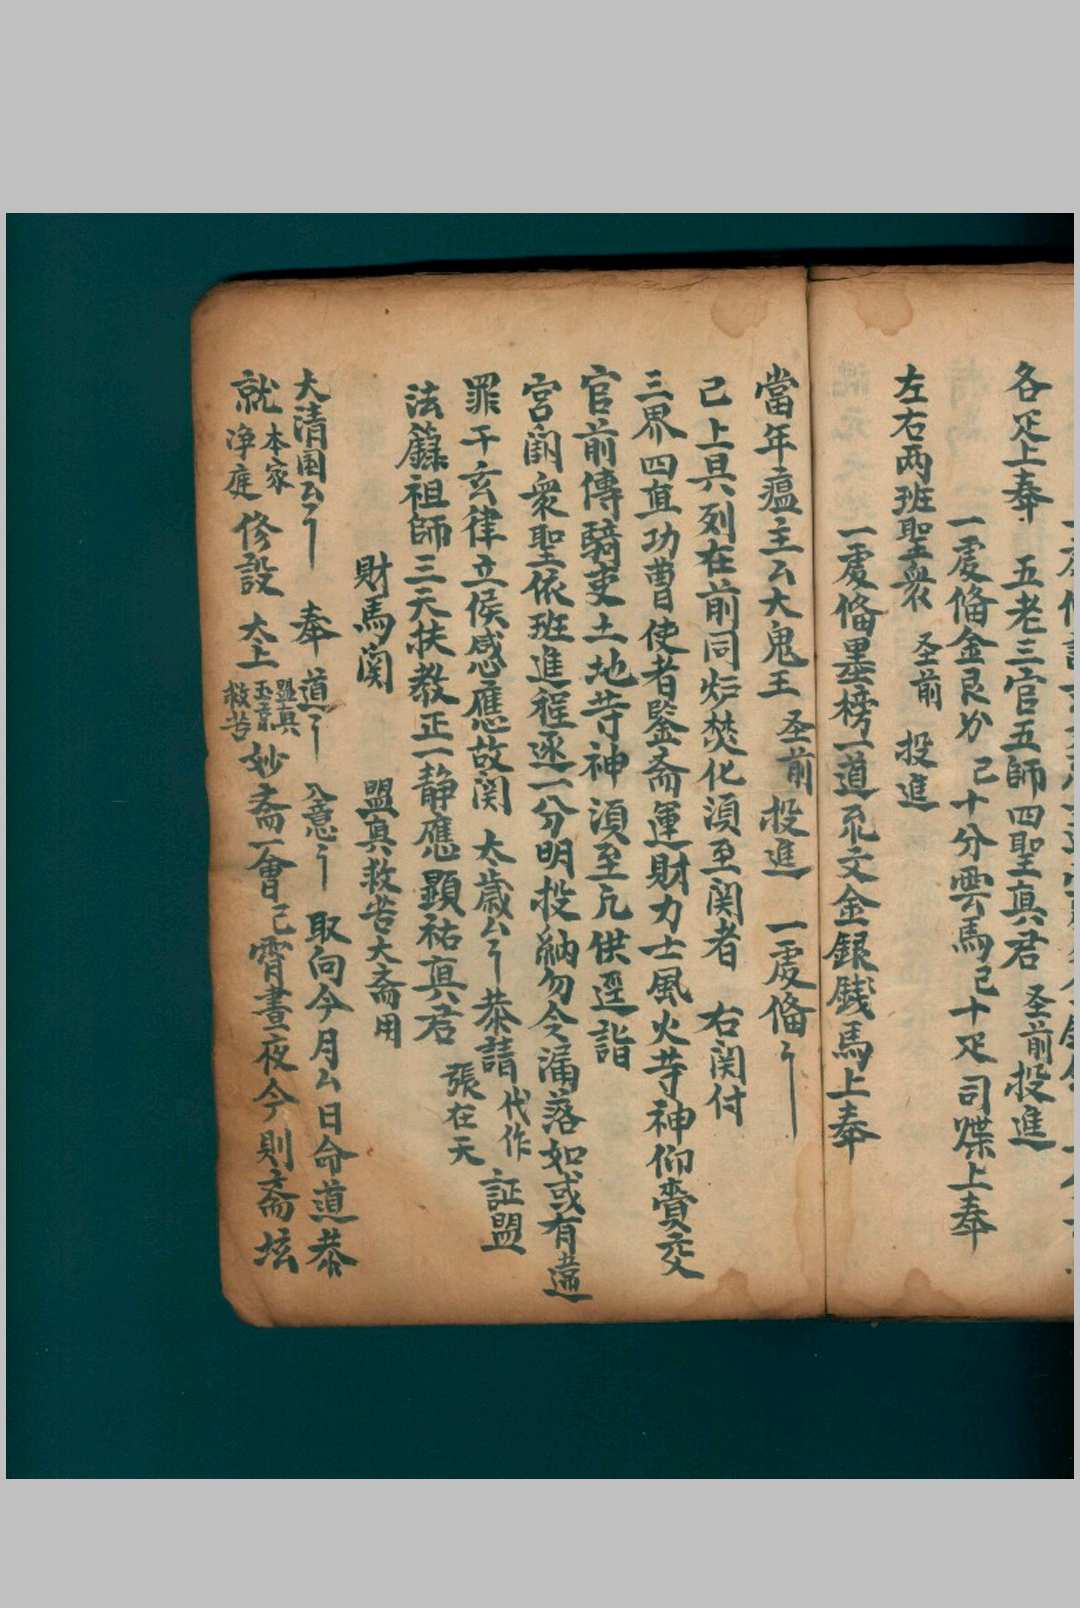 各疋上奉　五老三官五師四聖真君　圣前投進
一處俻金艮分　己十分雲馬己十疋司牒上奉
左右两班聖衆　圣前　投進
一處俻墨榜一道　文金銀錢馬上奉
當年瘟主厶大鬼王　圣前　投進　一處俻
已上具列在前同炉焚化湏至関者　右関付
三界四直功曹使者監斋運財力士風火䒭神仰賫交
官前傳騎吏土地䒭神　湏至凡供逕詣
宮闕衆聖依班進程逐一分明投納勿令漏落如或有違
罪干玄律立俟感應故関　太歳厶　恭請　代作　証盟
法籙祖師三天扶教正一静應顕祐真君　張在天
財馬関　盟真救苦大斋用
大清国厶　奉　道　入意　取向今月厶日命道恭
就本家净庭修設　太上盟真玉京救苦妙斋一會己霄晝夜今則斋坛